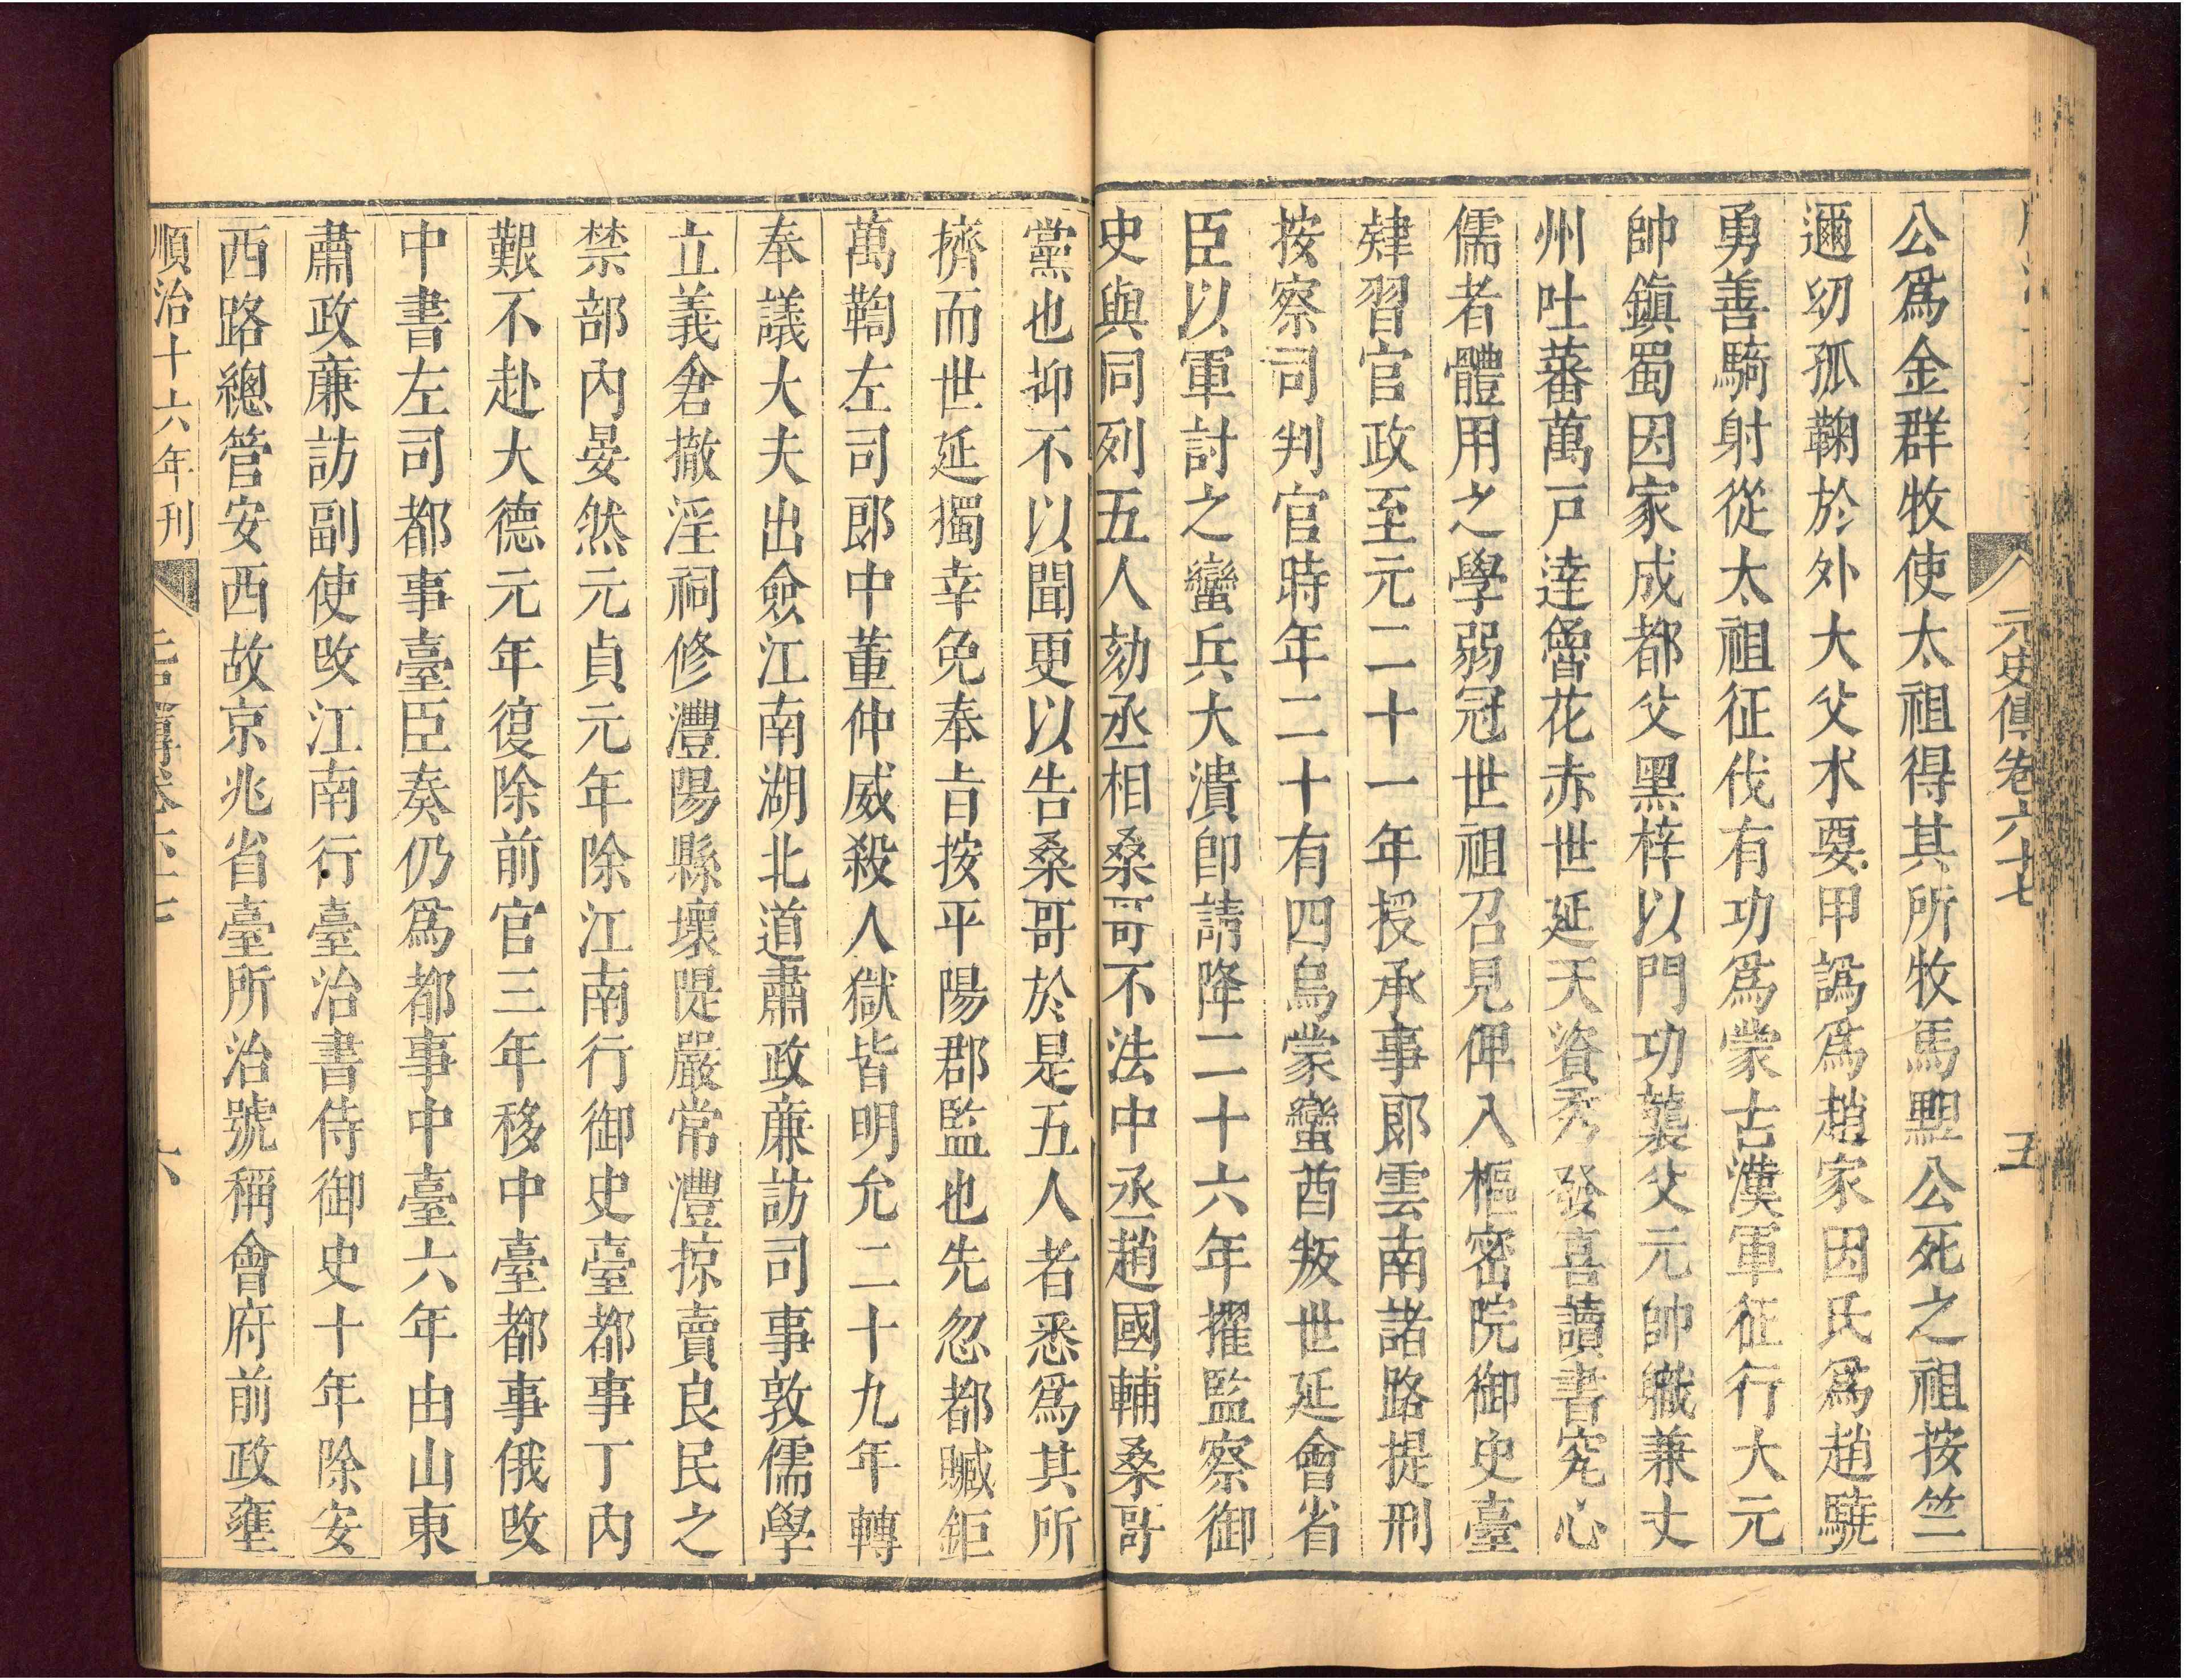 元史傳卷六十七
五
公爲金群牧使太祖得其所牧馬黑公死之祖按竺
邇幼孤鞠於外大父朮要甲譌爲趙家因氏爲趙驍
勇善騎射從太祖征伐有功爲蒙古漢軍征行大元
帥鎮蜀因家成都父黑梓以門功襲父元帥職兼文
州吐蕃萬戸達魯花赤世延天資秀發喜讀書究心
儒者體用之學弱冠世祖召見俾入樞密院御史臺
肄習官政至元二十一年授承事郞雲南諸路提刑
按察司判官時年二十有四烏蒙蠻酋叛世延會省
臣以軍討之蠻兵大潰卽請降二十六年擢監察御
史與同列五人劾丞相桑哥不法中丞趙國輔桑哥
黨也抑不以聞更以告桑哥於是五人者悉爲其所
擠而世延獨幸免奉旨按平陽郡監也先忽都贓鉅
萬鞫左司郞中董仲威殺人獄皆明允二十九年轉
奉議大夫出僉江南湖北道肅政廉訪司事敦儒學
立義倉撤淫祠修澧陽縣壞隄嚴常澧掠賣良民之
禁部內晏然元貞元年除江南行御史臺都事丁內
艱不赴大德元年復除前官三年移中臺都事俄改
中書左司都事臺臣奏仍爲都事中臺六年由山東
肅政廉訪副使改江南行臺治書侍御史十年除安
西路總管安西故京兆省臺所治號稱會府前政壅
順治十六年刊
六